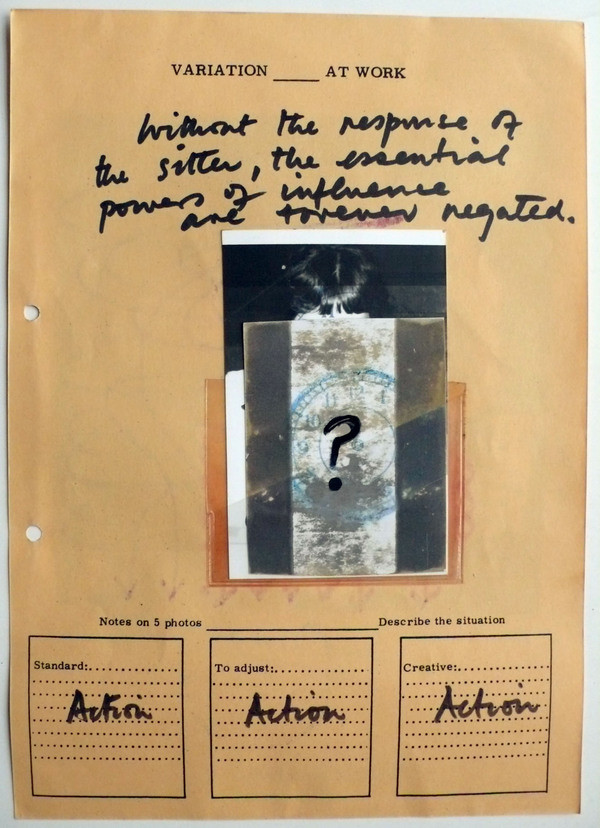 VARIATION _____ AT WORK
Without the response of
the sitter, the essential
powers of influence
are forever negated.
11 12
10
?
Notes on 5 photos ____________________ Describe the situation
Standard:
To adjust:
Creative:
Action
Action
Action